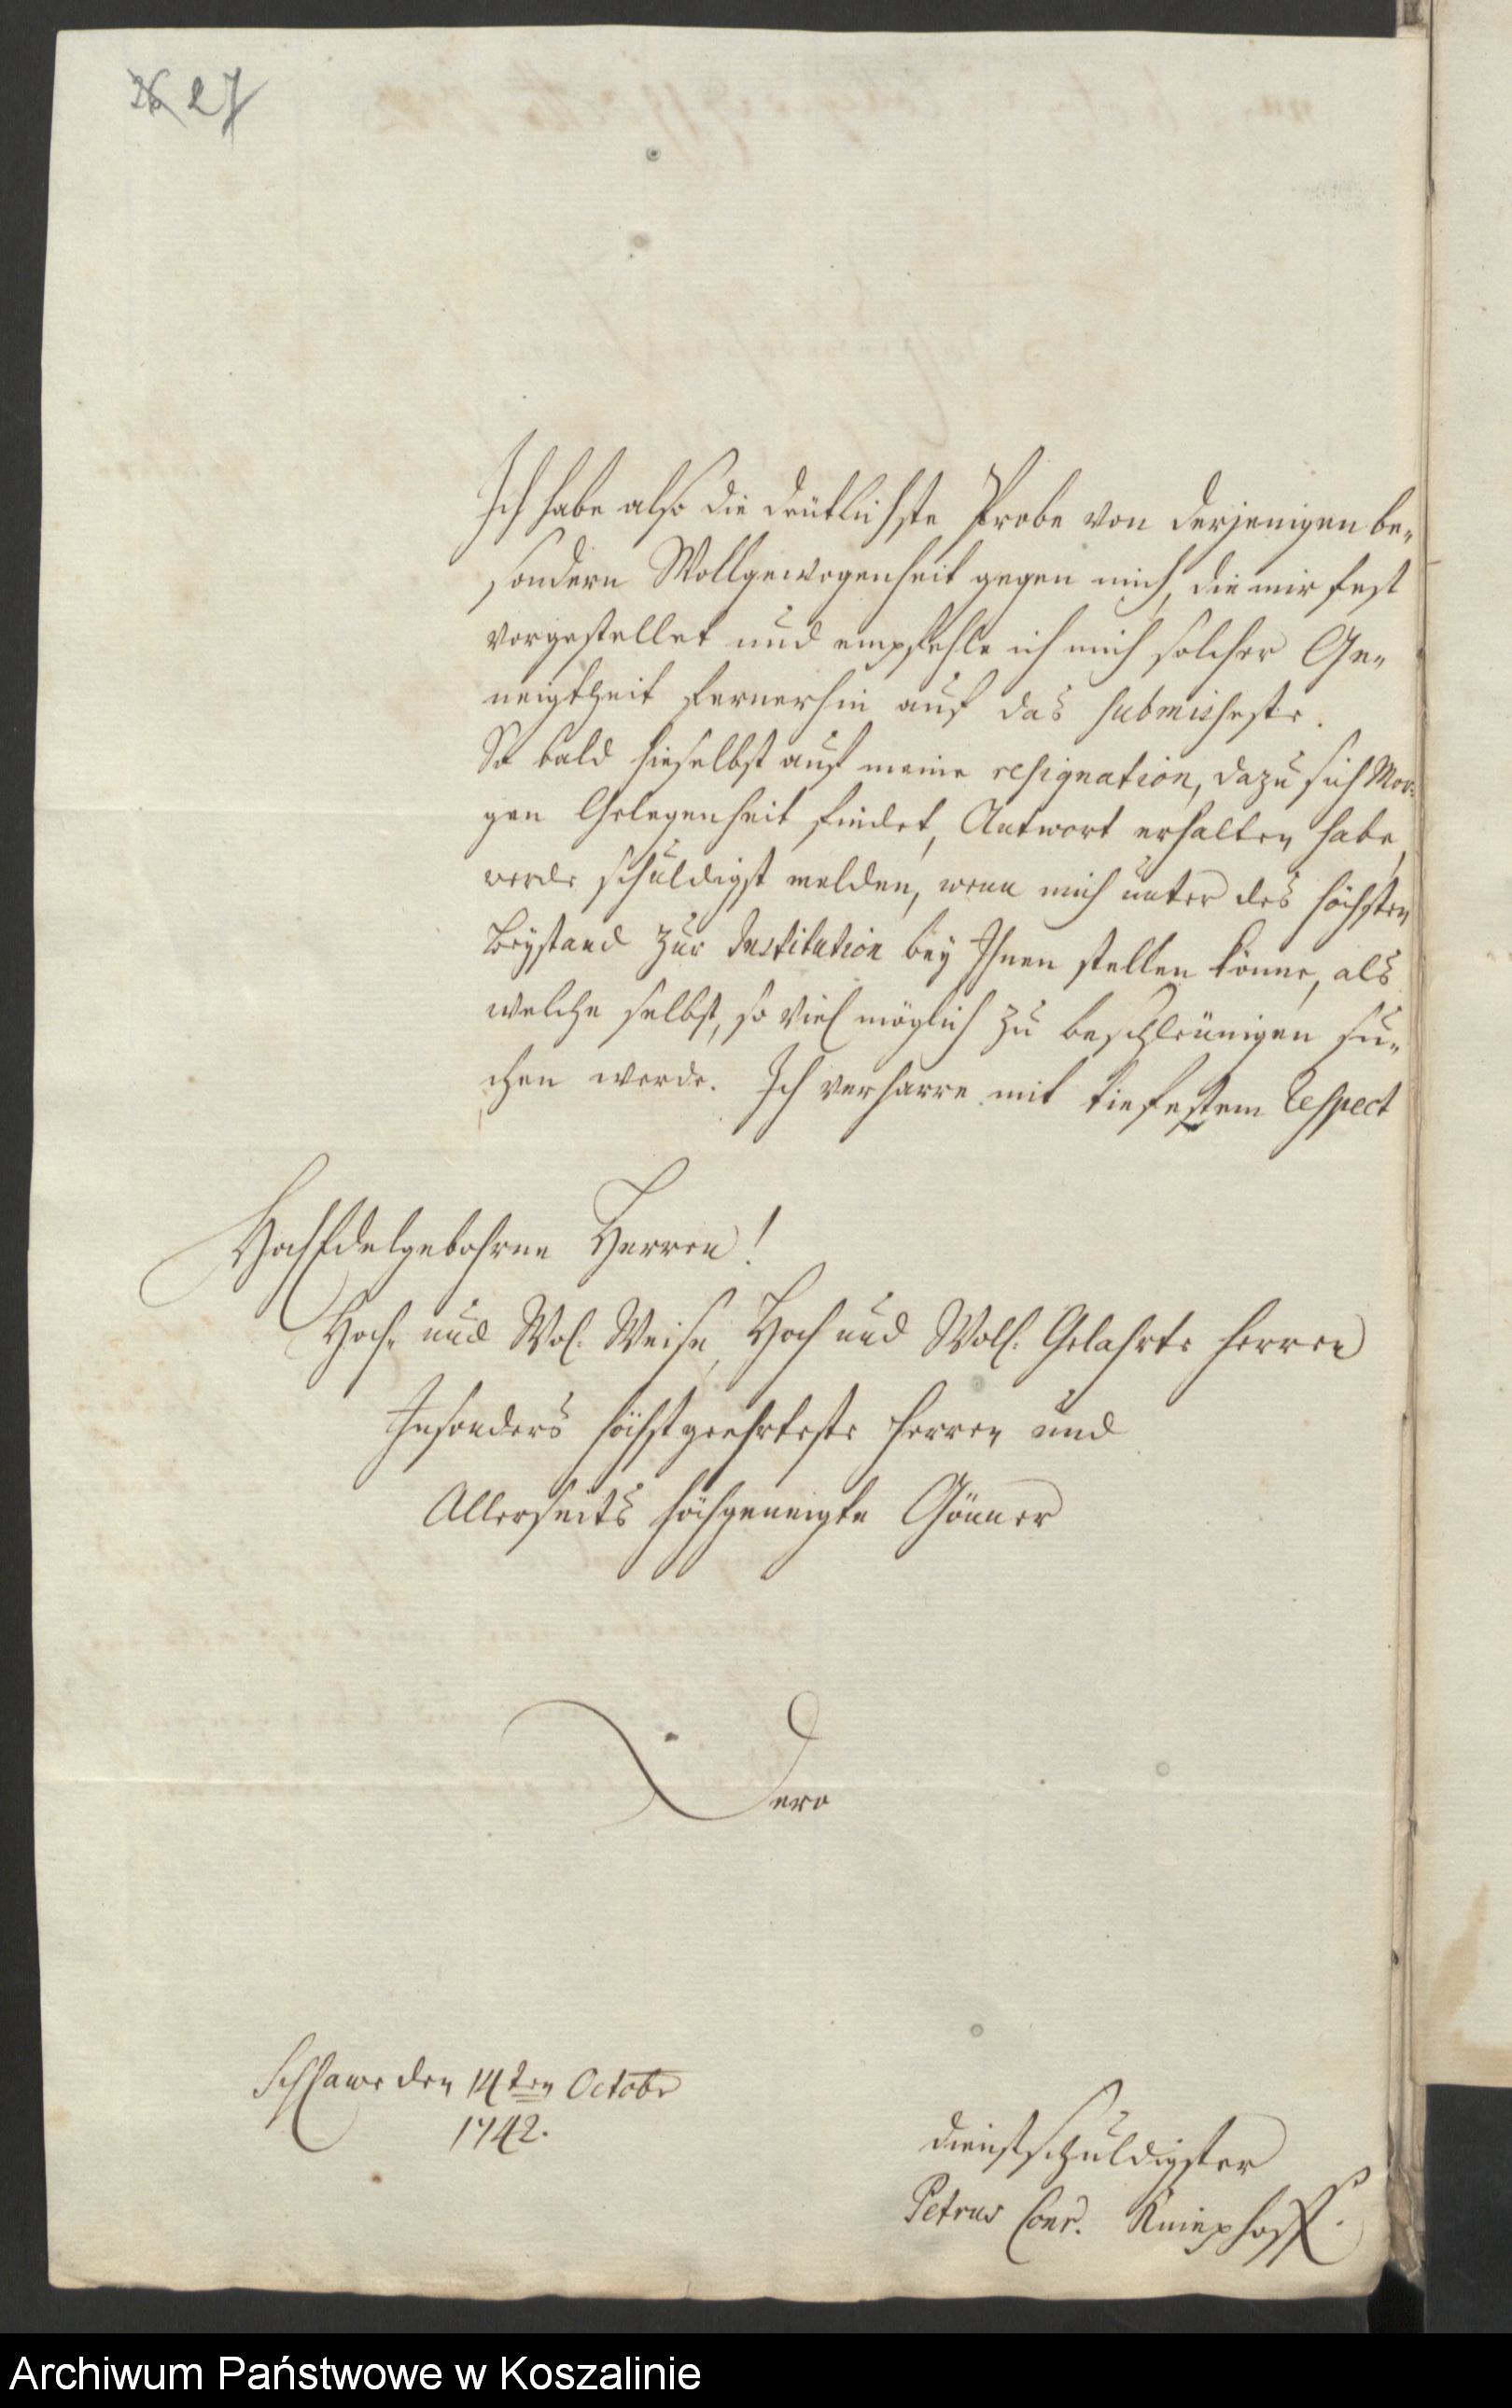 26 27
Ich habe also die deütlichste Probe von derjenigen be-
sondern Wollgewogenheit gegen mich, die mir fest
vorgestellet und empfehle ich mich solcher Ge-
neigtheit fernerhin auf das submisseste.
So bald hieselbst auf meine resignation, dazu sich Mor-
gen Gelegenheit findet, Antwort erhalten habe,
werde schuldigst melden, wenn mich unter des höchsten
Beystand zur Institution bey Ihnen stellen könne, als
welche selbst, so viel möglich zu beschleünigen su-
chen werde. Ich verharre mit tiefestem Respect
HochEdelgebohrne Herren!
Hoch- und Wol. Weise, Hoch und Woll. Gelahrte Herren
Insonders höchstgeehrteste Herren und
Allerseits hochgeneigte Gönner
Dero
Schlawe den 14ten Octobr
1742.
dienstschuldigster
Petrus Conr. Kniephoff.
Archiwum Państwowe w Koszalinie